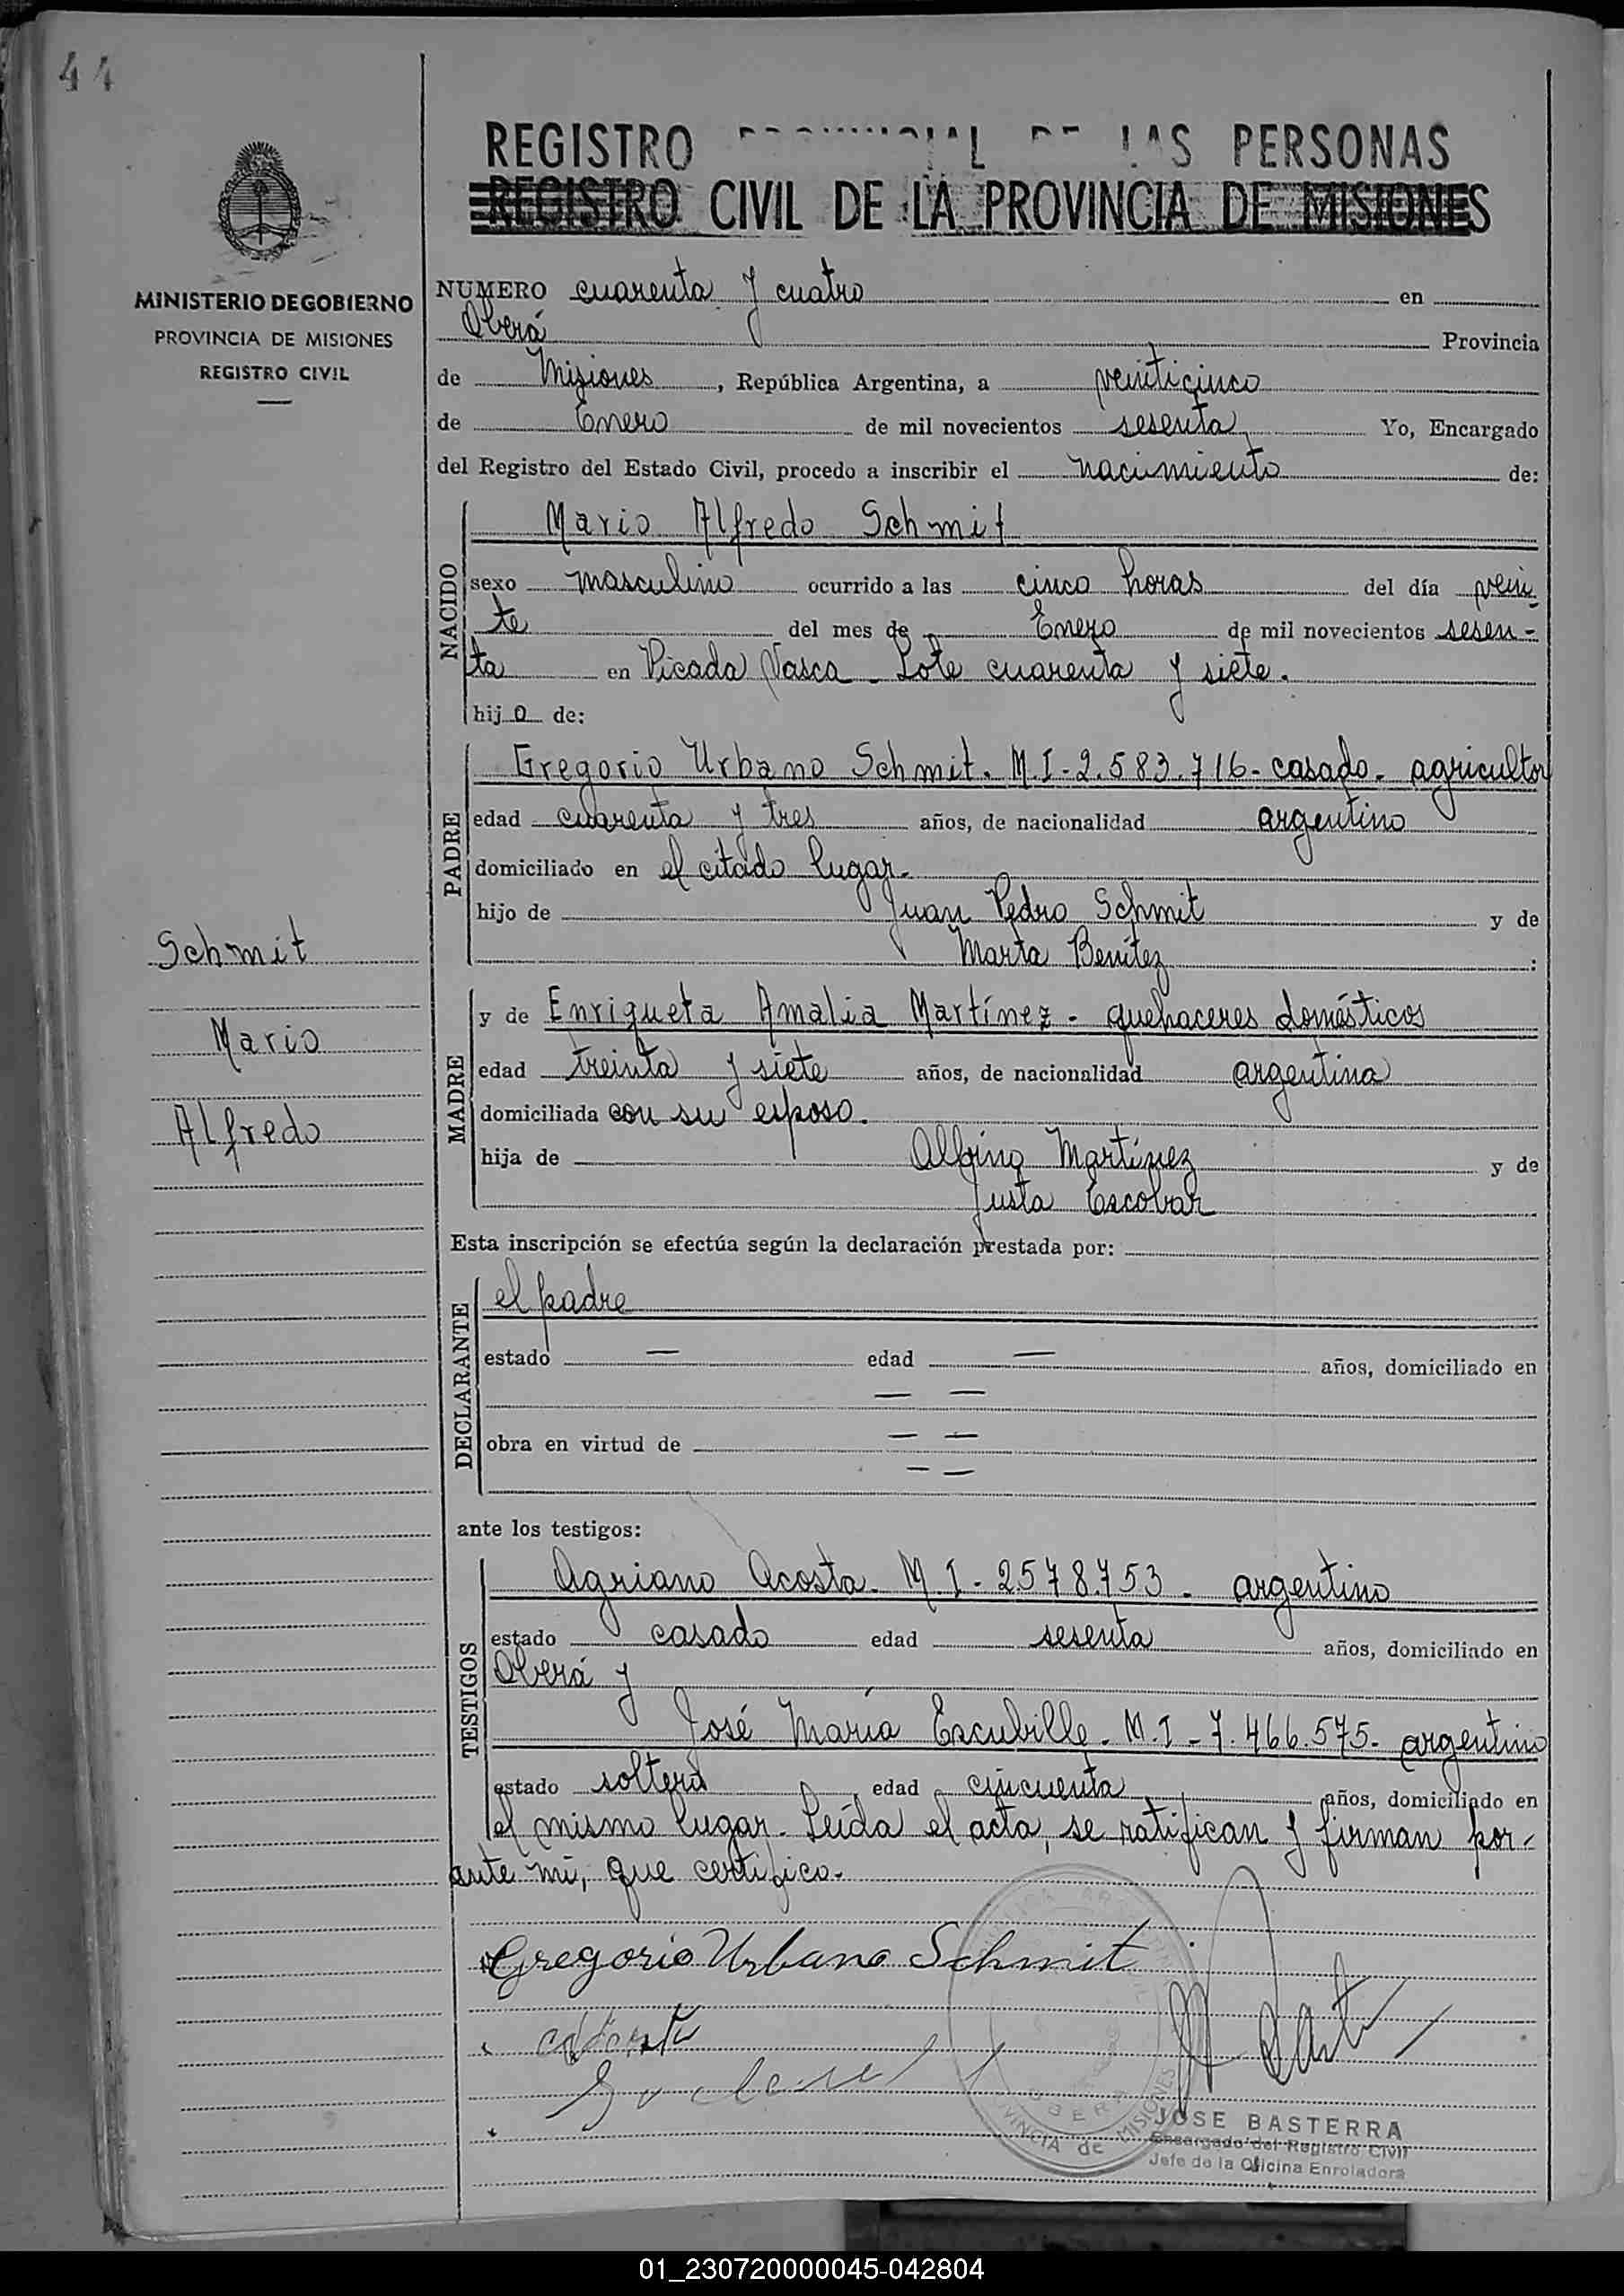 44
REGISTRO PROVINCIAL DE LAS PERSONAS
REGISTRO CIVIL DE LA PROVINCIA DE MISIONES
MINISTERIO DE GOBIERNO
PROVINCIA DE MISIONES
REGISTRO CIVIL
NUMERO cuarenta y cuatro en
Oberá Provincia
de Misiones, República Argentina, a veinticinco
de Enero de mil novecientos sesenta Yo, Encargado
del Registro del Estado Civil, procedo a inscribir el nacimiento de:
NACIDO
Mario Alfredo Schmit
sexo masculino ocurrido a las cinco horas del día vein-
te del mes de Enero de mil novecientos sesen-
ta en Picada Vasca - Lote cuarenta y siete.
hijo de:
PADRE
Gregorio Urbano Schmit. M.I-2.583.716- casado- agricultor
edad cuarenta y tres años, de nacionalidad argentino
domiciliado en el citado lugar-
hijo de Juan Pedro Schmit y de
Marta Benítez :
Schmit
Mario
Alfredo
MADRE
y de Enriqueta Amalia Martínez - quehaceres domésticos
edad treinta y siete años, de nacionalidad argentina
domiciliada con su esposo.
hija de Albino Martínez y de
Justa Escobar
Esta inscripción se efectúa según la declaración prestada por:
DECLARANTE
el padre
estado — edad — años, domiciliado en
— —
obra en virtud de — —
— —
ante los testigos:
TESTIGOS
Agriano Acosta- M.I-2578.753- argentino
estado casado edad sesenta años, domiciliado en
Oberá y
José María Escubille- M.I-7.466.575- argentino
estado soltero edad cincuenta años, domiciliado en
el mismo lugar- Leída el acta, se ratifican y firman por-
ante mí, que certifico-
Gregorio Urbano Schmit
OBERA
PROVINCIA de MISIONES
JOSE BASTERRA
Encargado del Registro Civil
Jefe de la Oficina Enroladora
01_230720000045-042804